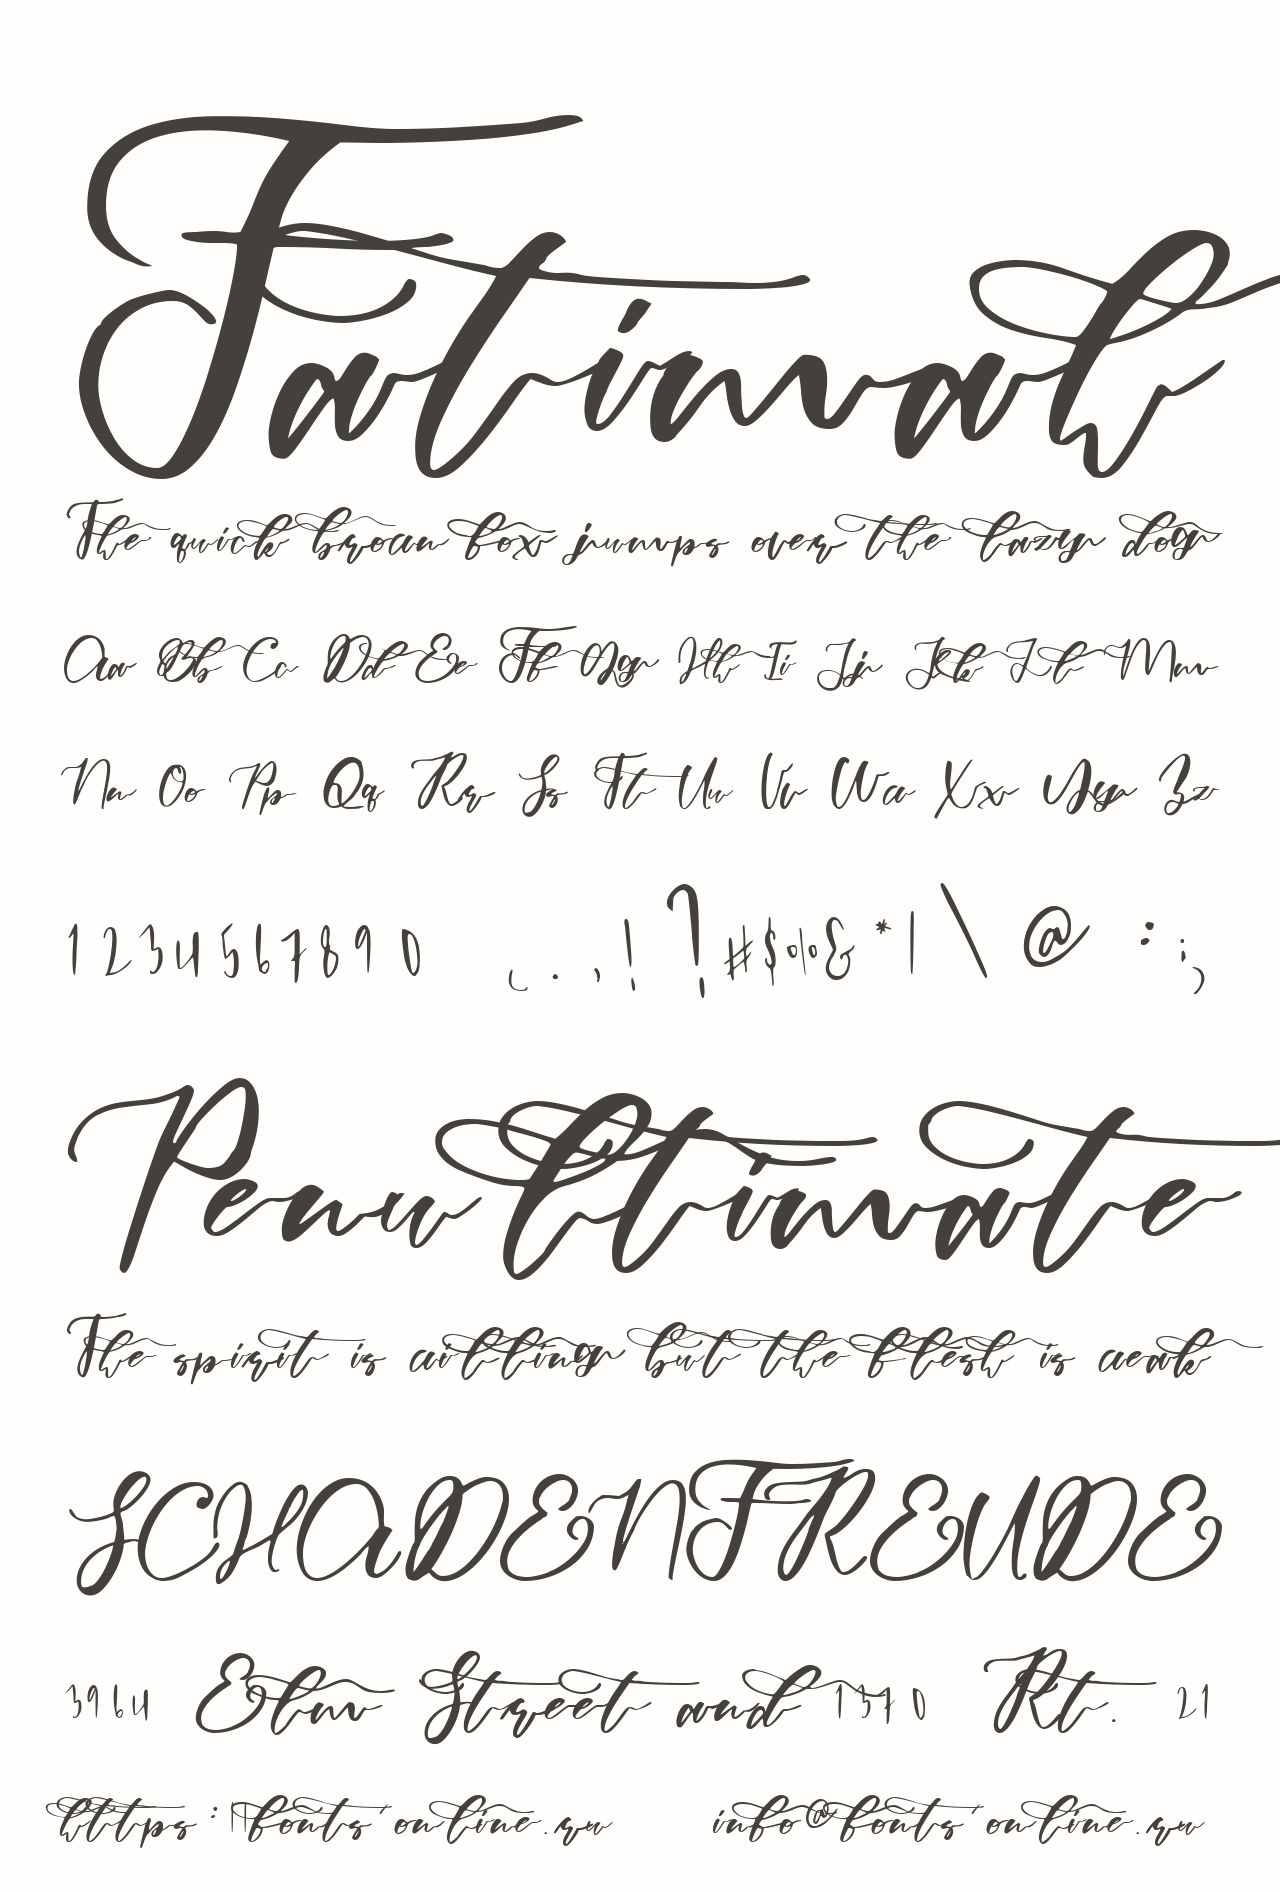 Fatimah
The quick brown fox jumps over the lazy dog
Aa Bb Cc Dd Ee Ff Gg Hh Ii Jj Kk Ll Mm
Nn Oo Pp Qq Rr Ss Tt Uu Vv Ww Xx Yy Zz
1 2 3 4 5 6 7 8 9 0 _ . , ! ? # $ % & * | \ @ : ;
Penultimate
The spirit is willing but the flesh is weak
SCHADENFREUDE
3964 Elm Street and 1370 Rt. 21
https://fontsonline.ru info@fontsonline.ru